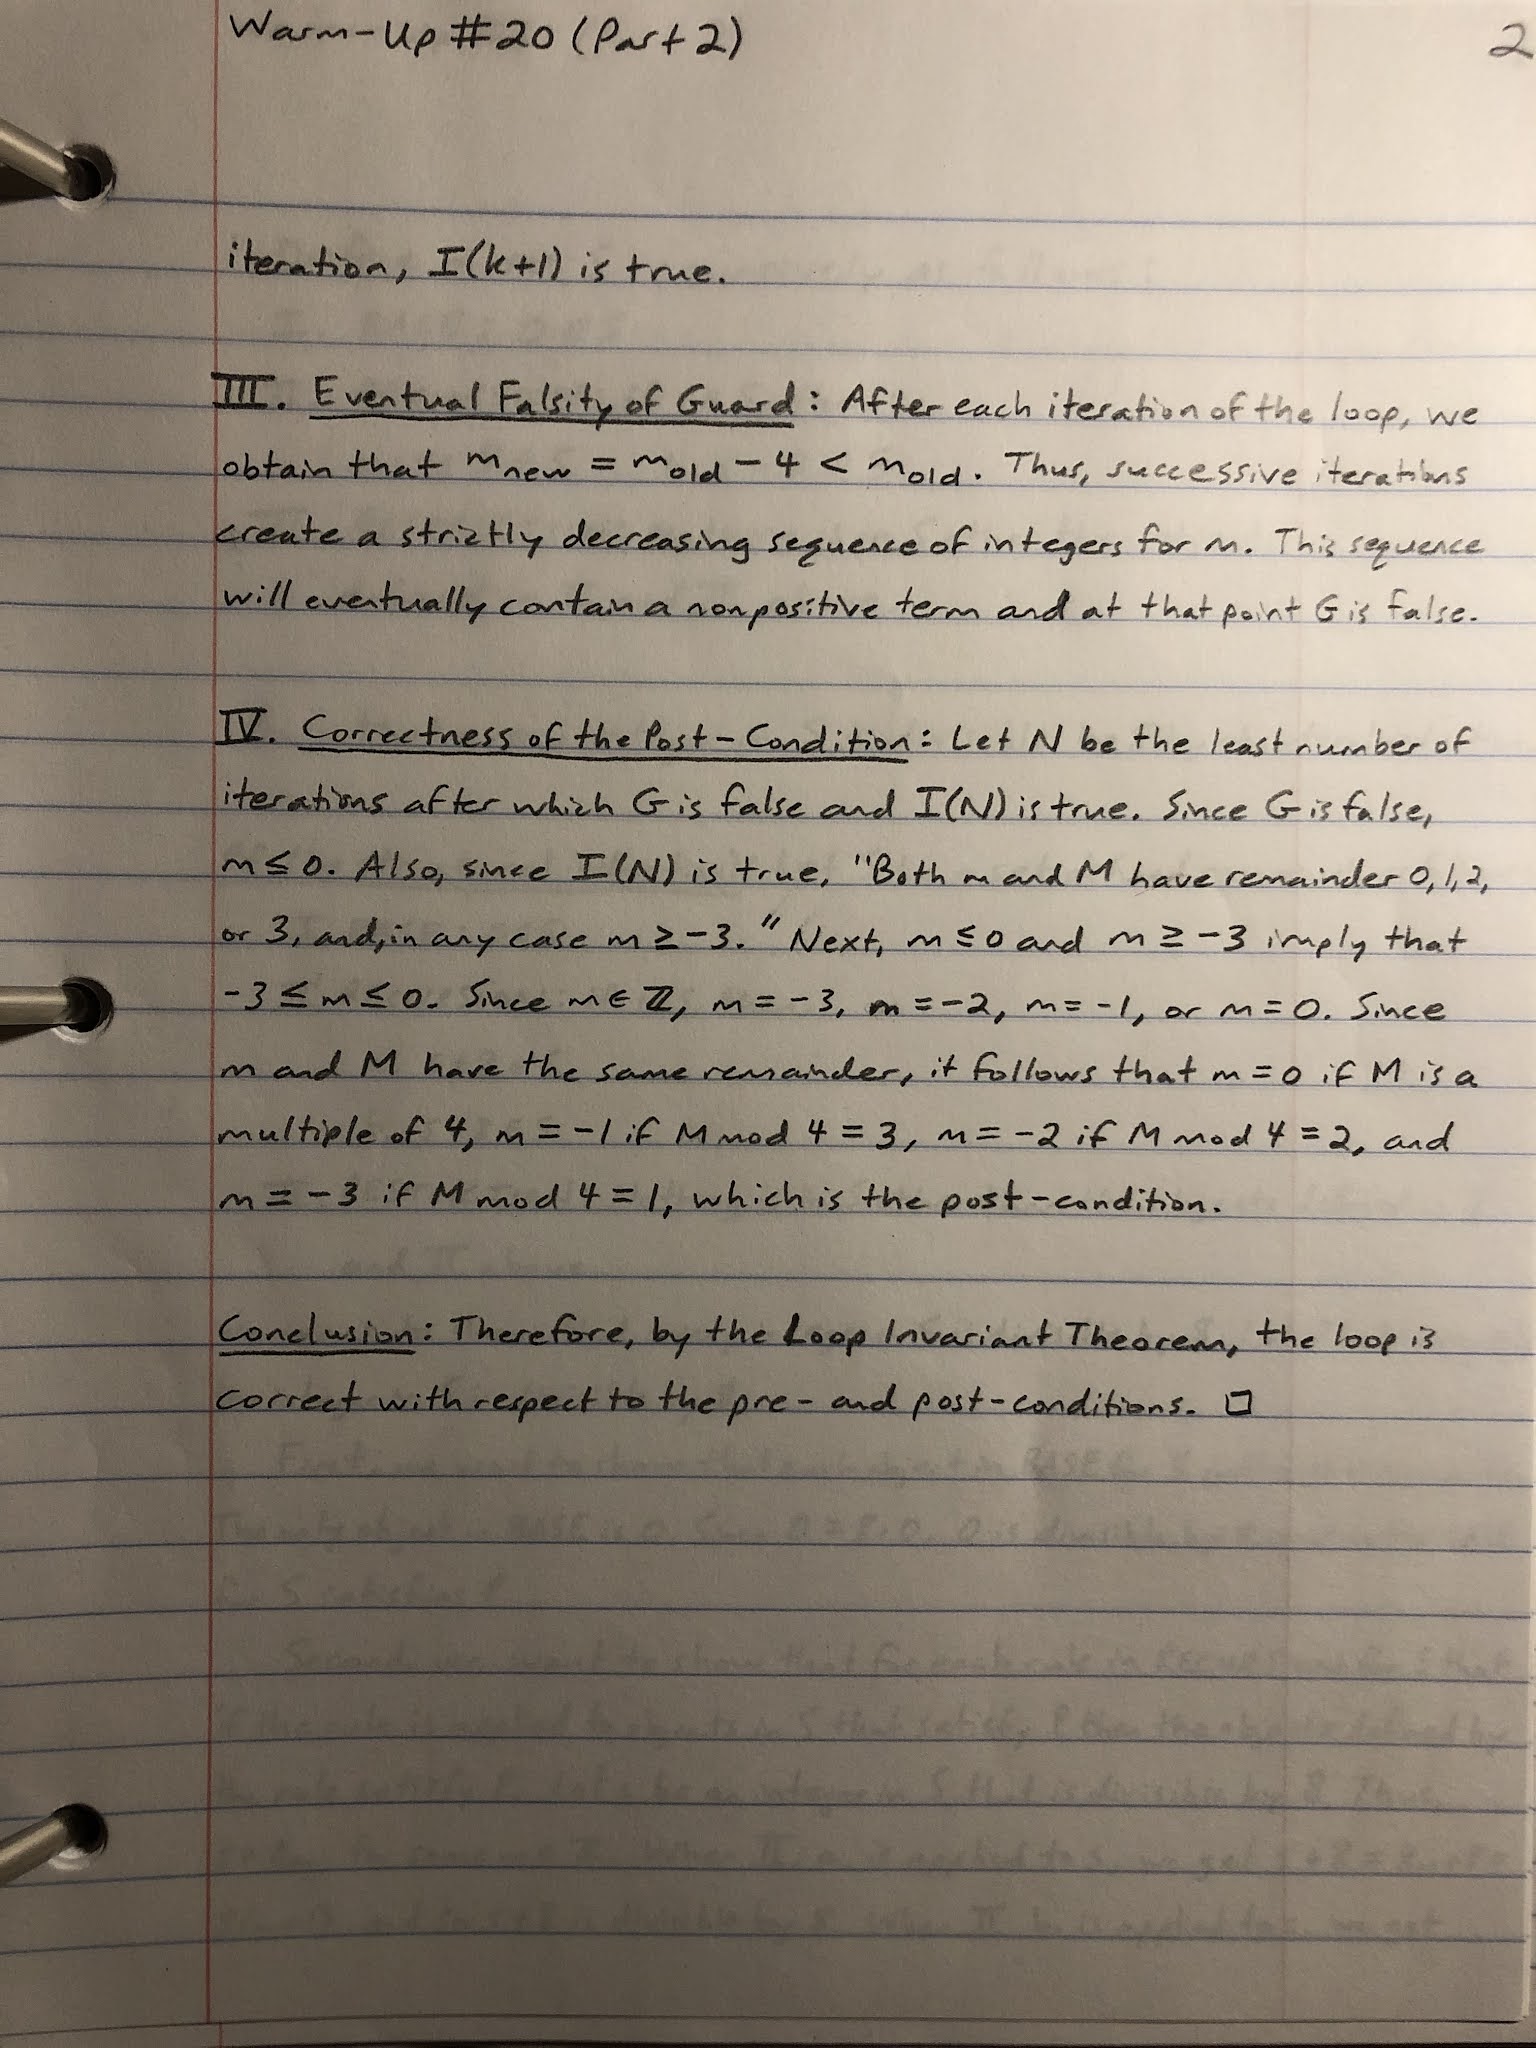 Warm-Up #20 (Part 2)
2
iteration, I(k+1) is true.
III. Eventual Falsity of Guard: After each iteration of the loop, we
obtain that m_new = m_old - 4 < m_old. Thus, successive iterations
create a strictly decreasing sequence of integers for m. This sequence
will eventually contain a nonpositive term and at that point G is false.
IV. Correctness of the Post-Condition: Let N be the least number of
iterations after which G is false and I(N) is true. Since G is false,
m ≤ 0. Also, since I(N) is true, "Both m and M have remainder 0, 1, 2,
or 3, and, in any case m ≥ -3." Next, m ≤ 0 and m ≥ -3 imply that
-3 ≤ m ≤ 0. Since m ∈ ℤ, m = -3, m = -2, m = -1, or m = 0. Since
m and M have the same remainder, it follows that m = 0 if M is a
multiple of 4, m = -1 if M mod 4 = 3, m = -2 if M mod 4 = 2, and
m = -3 if M mod 4 = 1, which is the post-condition.
Conclusion: Therefore, by the Loop Invariant Theorem, the loop is
correct with respect to the pre- and post-conditions. □